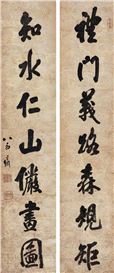 禮門義路森規矩
知水仁山儼畫圖